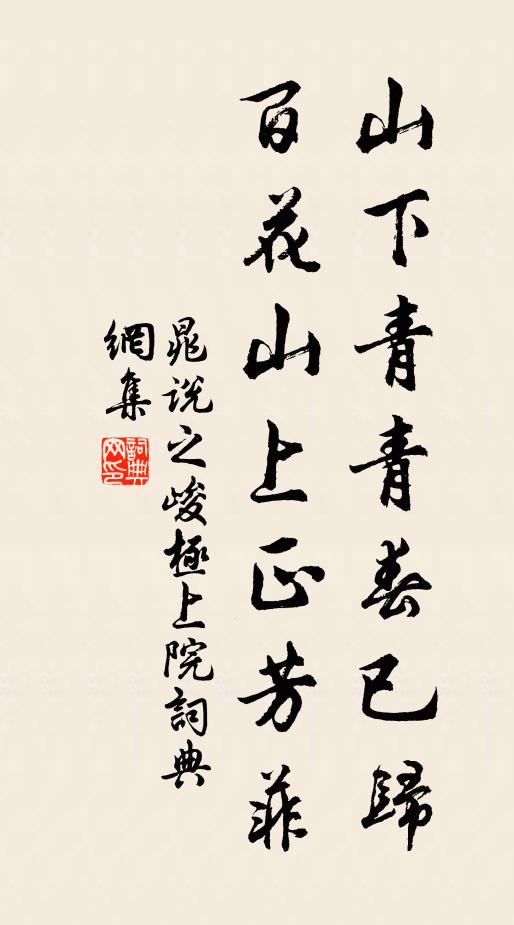 山下青青春已歸
百花山上正芳菲
晁說之峻極上院詞典
網集
詞典網印